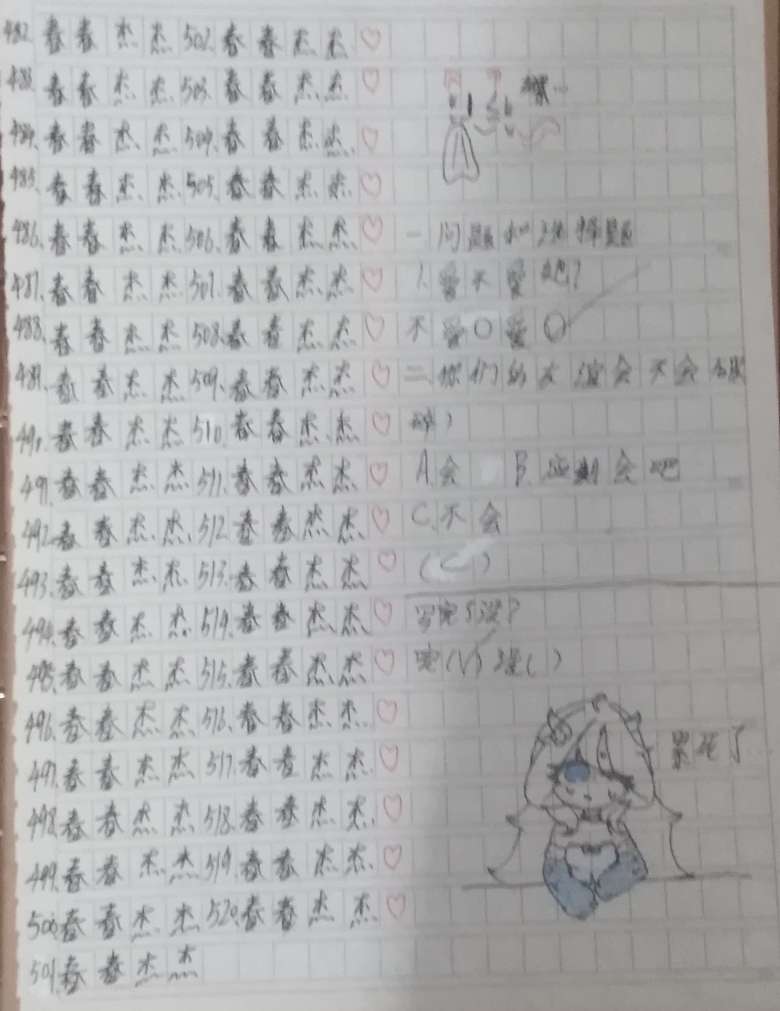 482. 春春杰杰 502. 春春杰杰♡
483. 春春杰杰 503. 春春杰杰♡
484. 春春杰杰 504. 春春杰杰♡
485. 春春杰杰 505. 春春杰杰♡
486. 春春杰杰 506. 春春杰杰♡
487. 春春杰杰 507. 春春杰杰♡
488. 春春杰杰 508. 春春杰杰♡
489. 春春杰杰 509. 春春杰杰♡
490. 春春杰杰 510. 春春杰杰♡
491. 春春杰杰 511. 春春杰杰♡
492. 春春杰杰 512. 春春杰杰♡
493. 春春杰杰 513. 春春杰杰♡
494. 春春杰杰 514. 春春杰杰♡
495. 春春杰杰 515. 春春杰杰♡
496. 春春杰杰 516. 春春杰杰♡
497. 春春杰杰 517. 春春杰杰♡
498. 春春杰杰 518. 春春杰杰♡
499. 春春杰杰 519. 春春杰杰♡
500. 春春杰杰 520. 春春杰杰♡
501. 春春杰杰
一问题和选择题
1.爱不爱吧?
不爱○爱○
二.你们的友谊会不会破
碎?
A.会 B.应会吧
C.不会
(C)
写完了没?
完(√)没( )
累死了